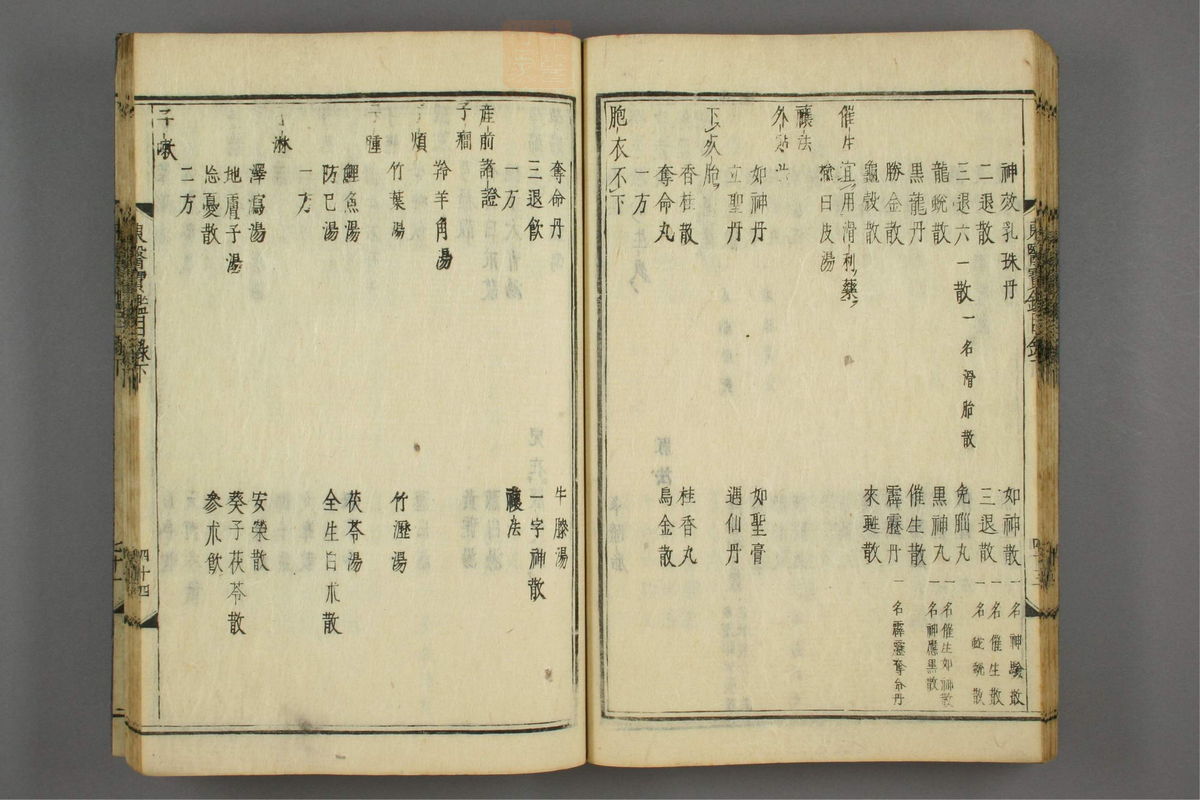 神效乳珠丹
如神散一名神驗散
二退散
三退散一名催生散一名蛇蛻散
三退六一散一名滑胎散
兔腦丸
龍蛻散
黑神丸一名催生如神散一名神應黑散
黑龍丹
催生散
勝金散
霹靂丹一名霹靂奪命丹
龜殼散
來甦散
催生宜用滑利藥
楡白皮湯
禳法
外貼法
如神丹
如聖膏
立聖丹
遇仙丹
下死胎
香桂散
桂香丸
奪命丸
烏金散
一方
胞衣不下
奪命丹
牛膝湯
三退飮
一字神散
一方
禳法
産前諸證
子癎
羚羊角湯
子煩
竹葉湯
竹瀝湯
子腫
鯉魚湯
茯苓湯
防己湯
全生白朮散
一方
子淋
澤瀉湯
安榮散
地膚子湯
葵子茯苓散
忘憂散
參朮飮
二方
子嗽
東醫寶鑑目錄下
四十四